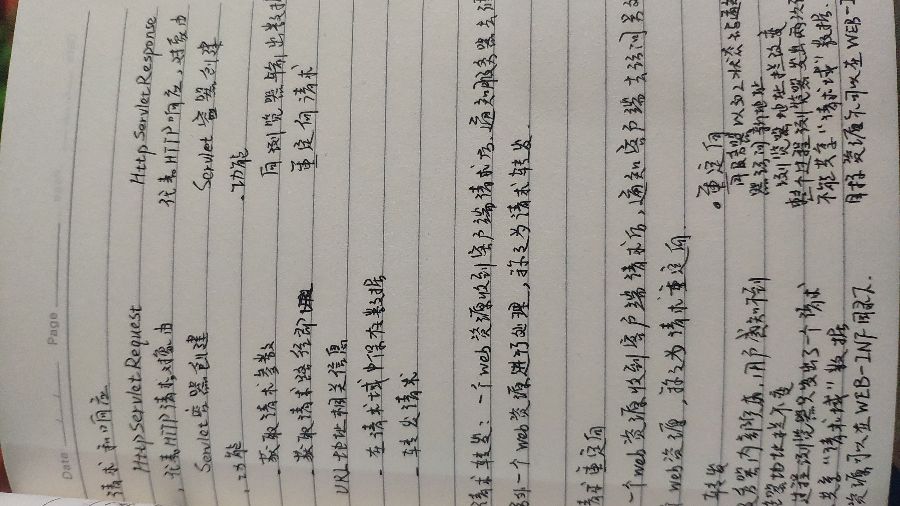 Date
Page
请求和响应
HttpServletRequest HttpServletResponse
代表HTTP请求,对象由 代表HTTP响应,对象由
Servlet容器创建 Servlet容器创建
·功能 ·功能
- 获取请求参数 向浏览器输出数据
- 获取请求路径即 重定向请求
URL地址相关信息
- 在请求域中保存数据
- 转发请求
请求转发:一个web资源收到客户端请求后,通知服务器去
另外一个web资源进行处理,称之为请求转发.
请求重定向
一个web资源收到客户端请求后,通知客户端去访问另
web资源,称之为请求重定向
转发 ·重定向
器内部完成,用户感知不到 服务器以302状态码通
地址栏不变 访问新地址
过程浏览器只发出了一个请求 浏览器地址栏改变
共享"请求域"数据 整个过程浏览器发出两次
资源可以在WEB-INF目录下. 不能共享"请求域"数据.
目标资源不可以在WEB-I